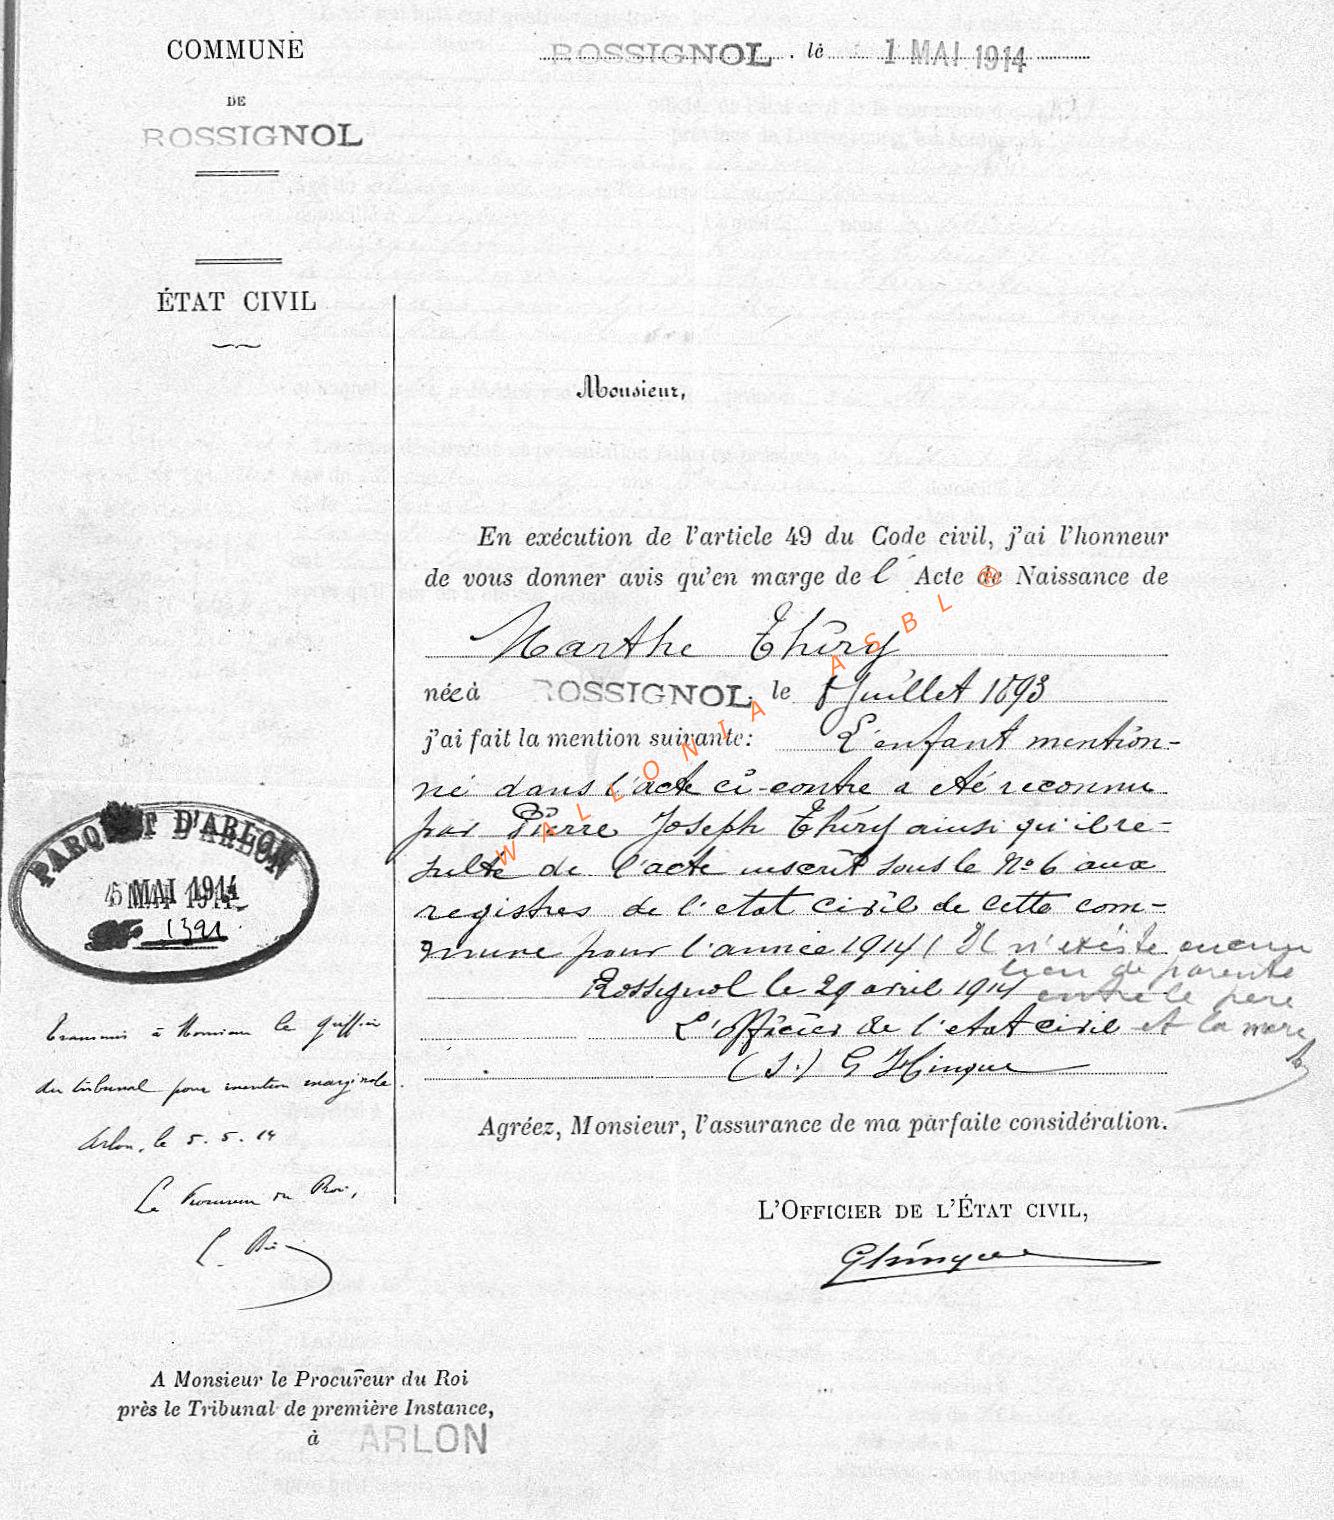 COMMUNE
DE
ROSSIGNOL
ROSSIGNOL, le 1 MAI 1914
ÉTAT CIVIL
Monsieur,
En exécution de l'article 49 du Code civil, j'ai l'honneur
de vous donner avis qu'en marge de l' Acte de Naissance de
Marthe Thiry
née à ROSSIGNOL le 8 Juillet 1893
j'ai fait la mention suivante: L'enfant mention-
né dans l'acte ci-contre a été reconnu
par Pierre Joseph Thiry ainsi qu'il re-
sulte de l'acte inscrit sous le No 6 aux
registres de l'etat civil de cette com-
mune pour l'année 1914 ( Il n'existe aucun
lien de parenté
Rossignol le 29 avril 1914 entre le père
L'officier de l'etat civil et la mère
(S.) G Hinque
Agréez, Monsieur, l'assurance de ma parfaite considération.
L'OFFICIER DE L'ÉTAT CIVIL,
GHinque
PARQUET D'ARLON
5 MAI 1914
1391
Transmis à Monsieur le Greffier
du tribunal pour mention marginale.
Arlon, le 5.5.14
Le Procureur du Roi,
A Monsieur le Procureur du Roi
près le Tribunal de première Instance,
à ARLON
WALLONIA ASBL ®